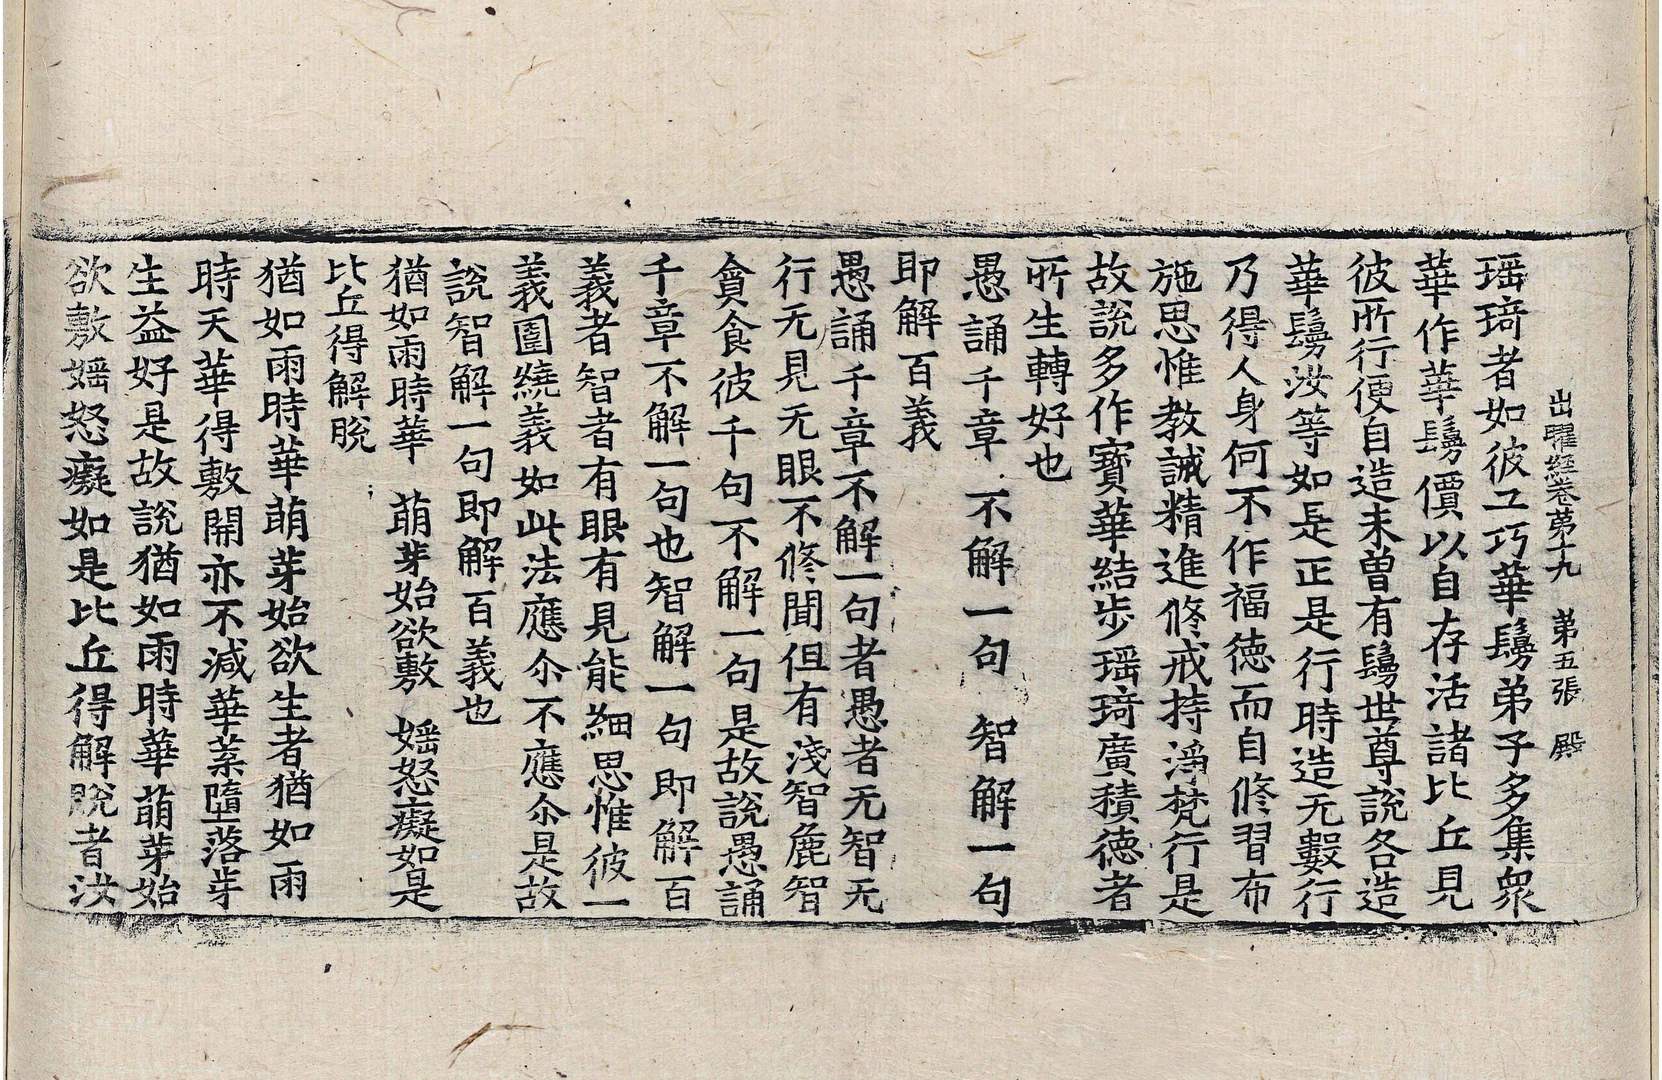 出曜經卷苐十九　苐五張　殿
瑶琦者如彼工巧華鬘弟子多集衆
華作華鬘價以自存活諸比丘見
彼所行便自造未曾有鬘世尊說各造
華鬘汝等如是正是行時造无數行
乃得人身何不作福德而自修習布
施思惟教誡精進修戒持淨梵行是
故說多作寶華結步瑶琦廣積德者
所生轉好也
愚誦千章　不解一句　智解一句
即解百義
愚誦千章不解一句者愚者无智无
行无見无眼不修聞但有淺智麁智
貪食彼千句不解一句是故說愚誦
千章不解一句也智解一句即解百
義者智者有眼有見能細思惟彼一
義圍繞義如此法應尒不應尒是故
說智解一句即解百義也
猶如雨時華　萌芽始欲敷　婬怒癡如是
比丘得解脫
猶如雨時華萌芽始欲生者猶如雨
時天華得敷開亦不減華葉墮落芽
生益好是故說猶如雨時華萌芽始
欲敷婬怒癡如是比丘得解脫者汝